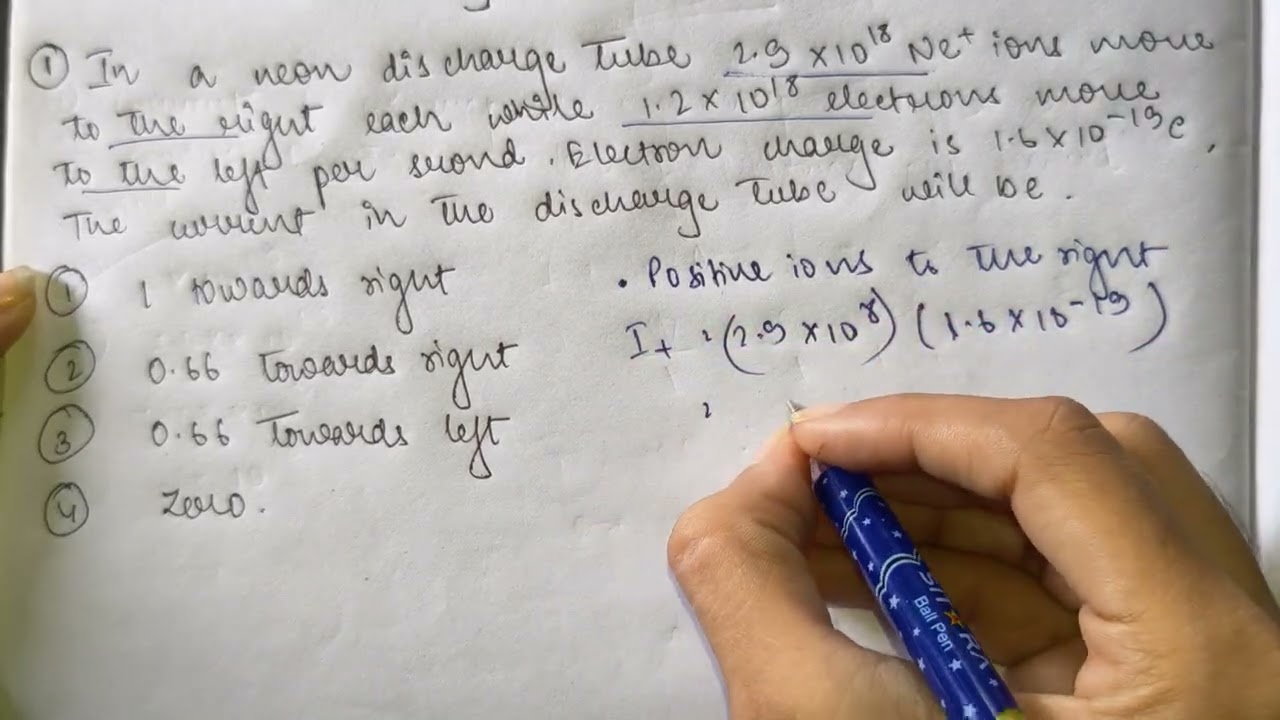 ① In a neon discharge tube 2.9 × 10¹⁸ Ne⁺ ions move
to the right each while 1.2 × 10¹⁸ electrons move
to the left per second. Electron charge is 1.6 × 10⁻¹⁹ C.
The current in the discharge tube will be.
① 1 towards right
② 0.66 towards right
③ 0.66 towards left
④ zero.
• Positive ions to the right
I₊ = (2.9 × 10⁸) (1.6 × 10⁻¹⁹)
=
Ball Pen